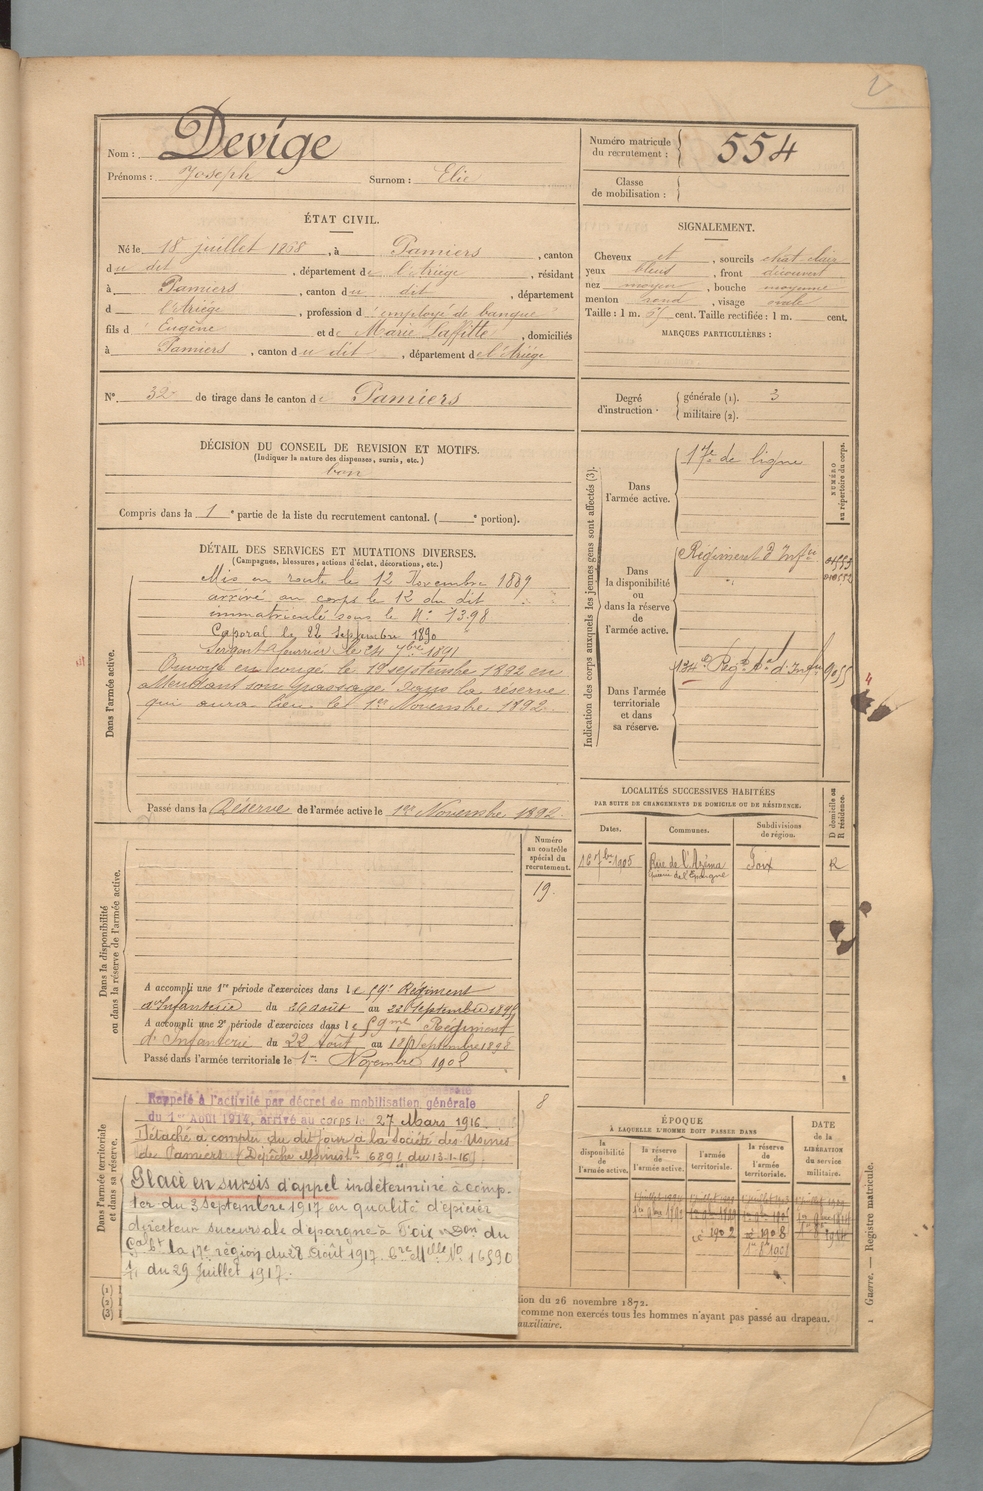 Nom : Devige
Prénoms : Joseph Surnom : Elie
Numéro matricule du recrutement : 554
Classe de mobilisation :
ÉTAT CIVIL.
Né le 18 juillet 1868, à Pamiers, canton
du dit, département de l'Ariège, résidant
à Pamiers, canton du dit, département
d l'Ariège, profession d'employé de banque
fils d'Eugène et de Marie Laffitte, domiciliés
à Pamiers, canton du dit, département de l'Ariège
SIGNALEMENT.
Cheveux et, sourcils chat. clair
yeux bleus, front découvert
nez moyen, bouche moyenne
menton rond, visage ovale
Taille : 1 m. cent. Taille rectifiée : 1 m. cent.
MARQUES PARTICULIÈRES :
N° 32 de tirage dans le canton de Pamiers
Degré d'instruction. générale (1). 3
militaire (2).
DÉCISION DU CONSEIL DE REVISION ET MOTIFS.
(Indiquer la nature des dispenses, sursis, etc.)
bon
Compris dans la 1e partie de la liste du recrutement cantonal. ( e portion).
DÉTAIL DES SERVICES ET MUTATIONS DIVERSES.
(Campagnes, blessures, actions d'éclat, décorations, etc.)
Dans l'armée active.
Mis en route le 12 Novembre 1889
arrivé au corps le 12 du dit
immatriculé sous le N° 1398
Caporal le 22 septembre 1890
Sergent fourrier le 21 7bre 1891
Envoyé en congé le 19 septembre 1892 en
attendant son passage dans la réserve
qui aura lieu le 1er Novembre 1892.
Passé dans la Réserve de l'armée active le 1er Novembre 1892
Indication des corps auxquels les jeunes gens sont affectés (3).
NUMÉRO au répertoire du corps.
Dans l'armée active.
17e de ligne
Dans la disponibilité ou dans la réserve de l'armée active.
Régiment d'Infie
Dans l'armée territoriale et dans sa réserve.
134e Régt d'Infie 9055
LOCALITÉS SUCCESSIVES HABITÉES
PAR SUITE DE CHANGEMENTS DE DOMICILE OU DE RÉSIDENCE.
Dates. Communes. Subdivisions de région. D domicile ou R résidence.
16 7bre 1905 Rue de l'Azéma Foix R
Caisse de l'Epargne
Dans la disponibilité ou dans la réserve de l'armée active.
Numéro au contrôle spécial du recrutement.
19
A accompli une 1re période d'exercices dans le 59e Régiment
d'Infanterie du 26 août au 22 Septembre 1895
A accompli une 2e période d'exercices dans le 59me Régiment
d'Infanterie du 22 Août au 18 Septembre 1898
Passé dans l'armée territoriale le 1er Novembre 1902
Dans l'armée territoriale et dans sa réserve.
8
Rappelé à l'activité par décret de mobilisation générale
du 1er Août 1914, arrivé au corps le 27 Mars 1916
Détaché à compter du dit jour à la Société des Usines
de Pamiers (Dépêche Ministlle 6891 du 13-1-16)
Placé en sursis d'appel indéterminé à comp-
ter du 3 Septembre 1917 en qualité d'épicier
directeur succursale d'épargne à Foix don du
Gal Ct la 17e région du 28 Août 1917. Cre Mlle No 16590
du 29 Juillet 1917.
ÉPOQUE
À LAQUELLE L'HOMME DOIT PASSER DANS
la disponibilité de l'armée active.
la réserve de l'armée active.
l'armée territoriale.
la réserve de l'armée territoriale.
DATE de la LIBÉRATION du service militaire.
1902
1908
(1)
(2)
(3)
tion du 26 novembre 1872.
comme non exercés tous les hommes n'ayant pas passé au drapeau.
auxiliaire.
1 Guerre. — Registre matricule.